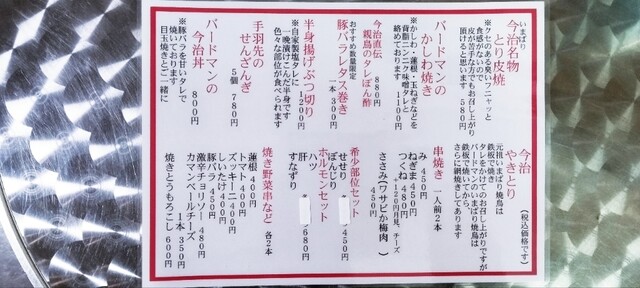 いまばり
今治名物
とり皮焼
580円
※クセのある臭いフニャッと
食感がないので
皮が苦手な方でもお召し上がり
頂けると思います
バードマンの
かしわ焼き
※かしわ・蓮根・玉ねぎなどを
背脂ニンニク味噌タレと
絡めております
1100円
今治直伝
親鳥のタレぽん酢
880円
おすすめ数量限定
豚バラレタス巻き
1本 300円
半身揚げぶつ切り
1200円
※自家製塩タレに
一晩漬けこんだ半身です
色々な部位が食べられます
手羽先の
せんざんぎ
5個 780円
バードマンの
今治丼
800円
※豚バラを甘いタレで
焼いております
目玉焼きとご一緒に
今治
やきとり
(税込価格です)
元祖いまばり焼鳥は
鉄板で焼き
タレをかけてのお召し上がりですが
バードマンのいまばり焼鳥は
鉄板で焼いてから
さらに網焼きしてあります
串焼き 一人前2本
み 450円
ねぎま 450円
つくね 480円
120円 月見、チーズ
ささみ(ワサビか梅肉)
450円
希少部位セット
せせり
ぼんじり
450円
ホルモンセット
ハツ
肝
すなずり
680円
焼き野菜串など 各2本
蓮根 400円
トマト 400円
ズッキーニ 400円
しいたけ 400円
豚バラ 450円
激辛チョリソー 480円
カマンベールチーズ
1本 350円
焼きとうもろこし 600円